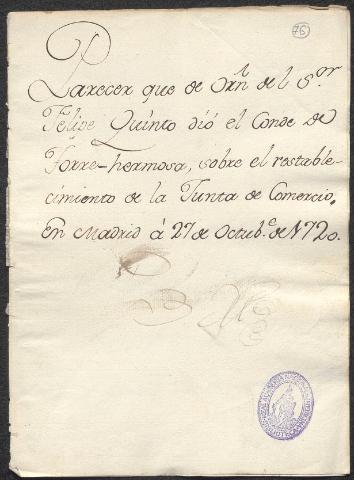 76
Parecer que de Orn. del Sor.
Felipe Quinto dió el Conde de
Torre-hermosa, sobre el restable-
cimiento de la Junta de Comercio,
En Madrid á 27 de Octube. de 1720.